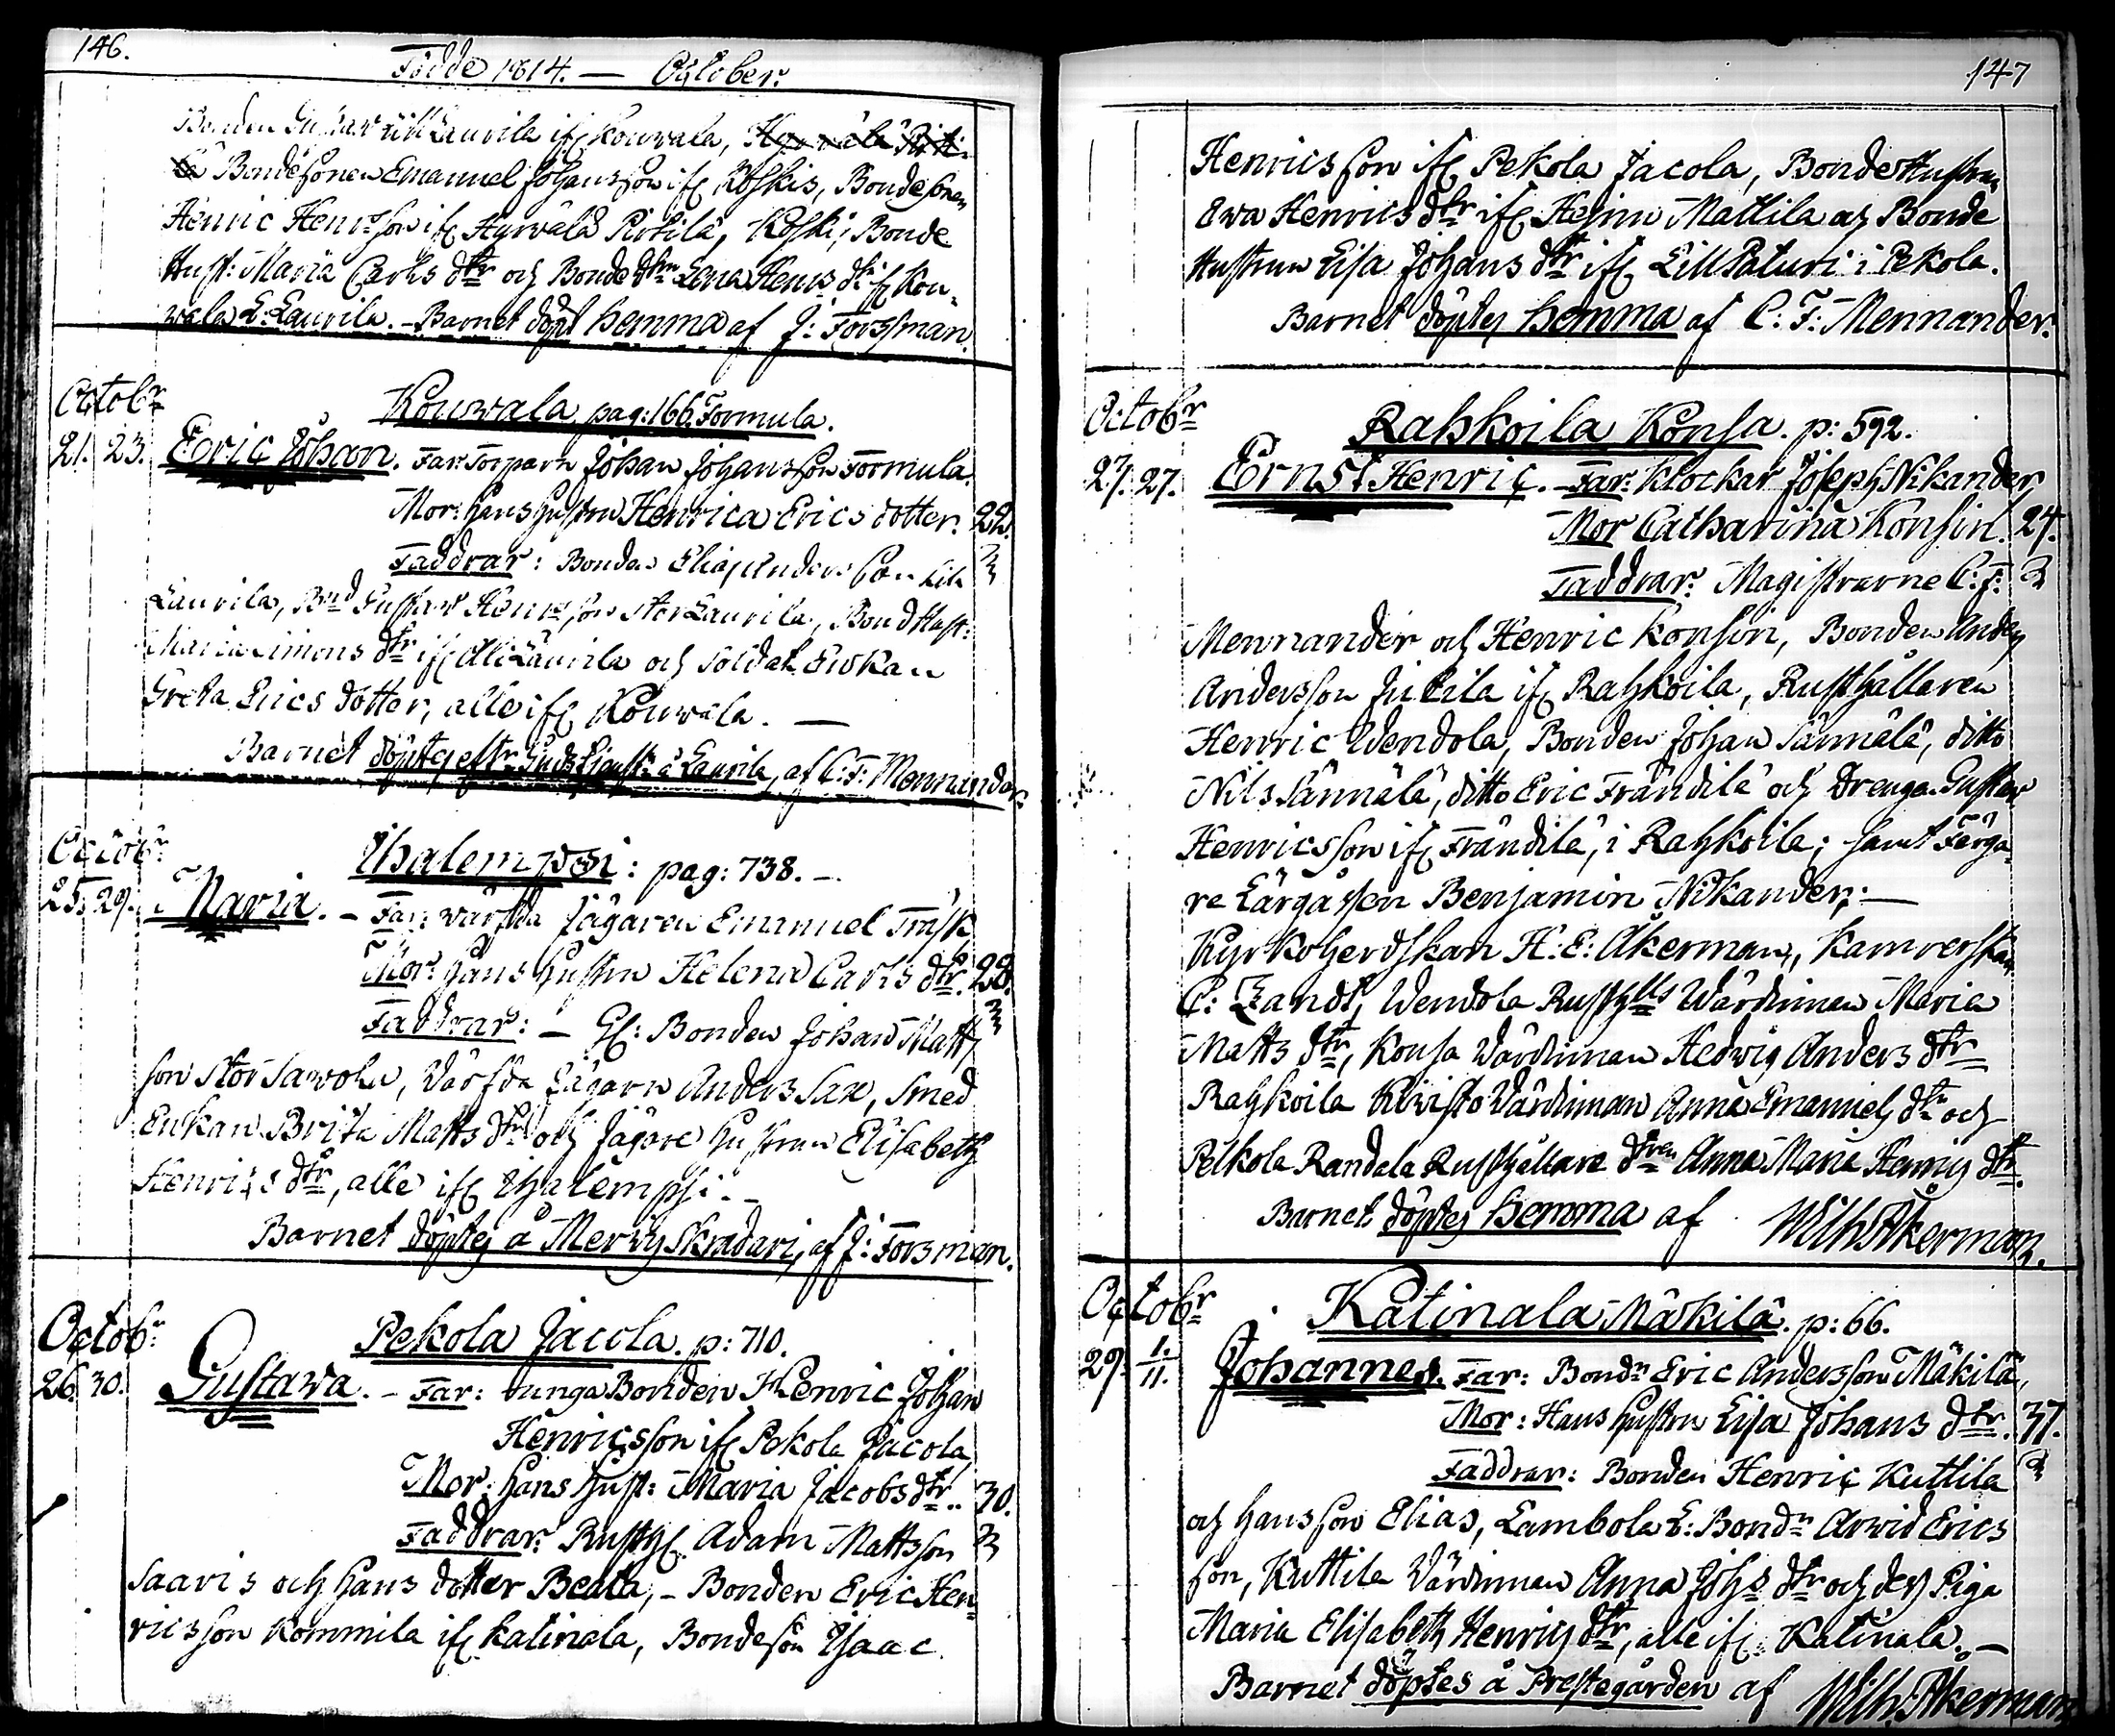 146.
Födde 1814. — October.
Bonden Gustav Lill Laurila ifr Kouwala, Hyrwälä Pirti-
lä Bondesonen Emanuel Johansson ifr Koskis, Bondesonen
Henric Henrs son ifr Hyrwälä Pirtilä, Koski, Bonde
Hust: Maria Carls dtr och Bonde dtrn Lena Henrs dtr ifr Kou-
wala L: Laurila. - Barnet döpt hemma af J: Forssman.
Octobr
Kouwala pag: 166. Formula.
21. 23. Eric Johan. Far: Torparn Johan Johansson Formula.
Mor: hans hustru Henrica Erics dotter. 22.
Faddrar: Bonden Elias Anderssson Lill
Laurila, Bnd Gustav Henrs son Stor Laurila, Bond Hust:
Maria Simons dtr ifr Ali Laurila och Soldat Enkan
Greta Erics dotter, alle ifr Kouwala. —
Barnet döptes eftr Gudstjenstn å Laurila, af C: F: Mennander.
Octobr
Ihalempsi: pag: 738. —
25. 29. Maria. - Far: värfda Jägaren Emanuel Träsk
Mor: hans hustru Helena Carls dtr. 28.
Faddrar: — Gl: Bonden Johan Matts
son Stor Sawola, Värfda Jägarn Anders Sax, Smed
Enkan Brita Matts dtr och Jägare hustrun Elisabeth
Henrics dtr, alle ifr Ihalempsi. —
Barnet döptes å Merwis Skradari, af J: Forsman.
Octobr
Pekola Jacola. p: 710.
26. 30. Gustava. - Far: unga Bonden Henric Johan
Henricsson ifr Pekola Jacola,
Mor: hans hust: Maria Jacobs dtr. 30.
Faddrar: Rusth. Adam Mattsson
Saaris och hans dotter Beata, - Bonden Eric Hen-
ricsson Kommila ifr Katinala, Bondeson Isaac
147
Henricsson ifr Pekola Jacola, Bonde Hustrun
Ewa Henrics dtr ifr Heinu Mattila och Bonde
Hustrun Lisa Johans dtr ifr Lill Paturi i Pekola.
Barnet döptes hemma af C: F: Mennander.
Octobr
Rahkoila Konsa. p: 592.
27. 27. Ernst Henric. - Far: Klockar Joseph Nikander
Mor Catharina Konsin. 24.
Faddrar: Magistrarne C: F:
Mennander och Henric Konsin, Bonden Anders
Andersson Jutila ifr Rahkoila, Rusthållaren
Henric Wendola, Bonden Johan Sännälä, ditto
Nils Sännälä, ditto Eric Frändilä och Drengen Gustav
Henricsson ifr Frändilä, i Rahkoila; samt Färga-
re Lärgåssen Benjamin Nikander; —
Kyrkoherdskan H: E: Åkerman, Kamrerskan
C: Zandt, Wendola Rusthlls Wärdinnan Maria
Matts dtr, Konsa Wärdinnan Hedwig Anders dtr
Rahkoila Kivisto Wärdinnan Anna Emanuels dtr och
Pelkola Randala Rusthållare dtren Anna Maria Henrics dtr.
Barnet döptes hemma af Wilh: Åkerman.
Octobr
Katinala Mäkilä. p: 66.
29. 1./11. Johannes. Far: Bondn Eric Andersson Mäkilä,
Mor: Hans hustru Lisa Johans dtr. 37.
Faddrar: Bonden Henric Kuttila
och hans son Elias, Lambola L: Bondn Arvid Erics
son, Kuttila Wärdinnan Anna Johs dtr och dess Piga
Maria Elisabeth Henrics dtr, alle ifr Katinala. —
Barnet döptes å Prestegården af Wilh: Åkerman